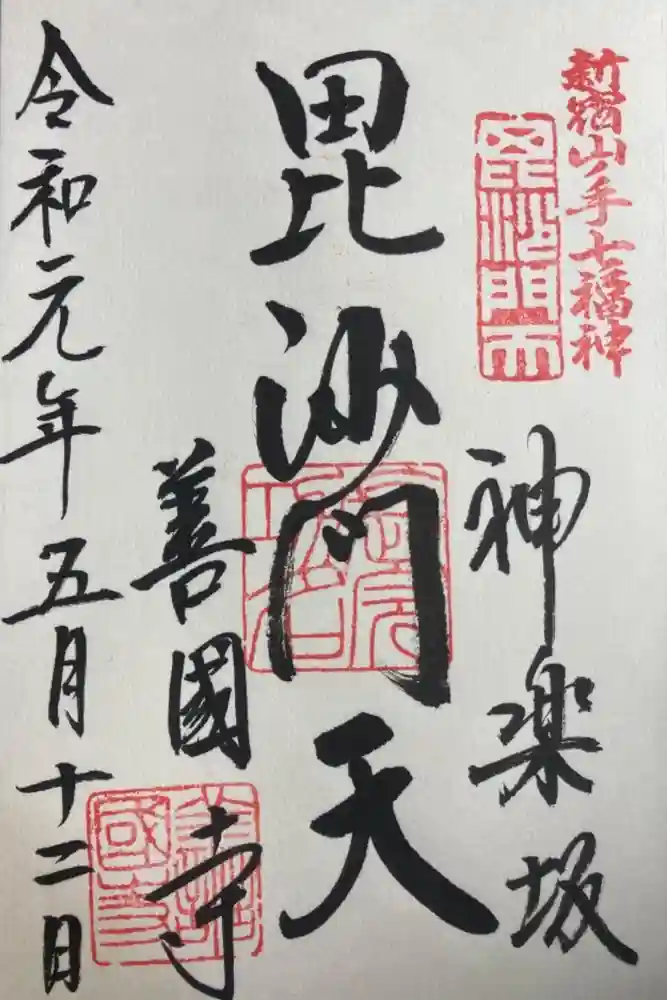 新宿山ノ手七福神
毘沙門天
神楽坂
毘沙門天
善國寺
令和元年五月十二日